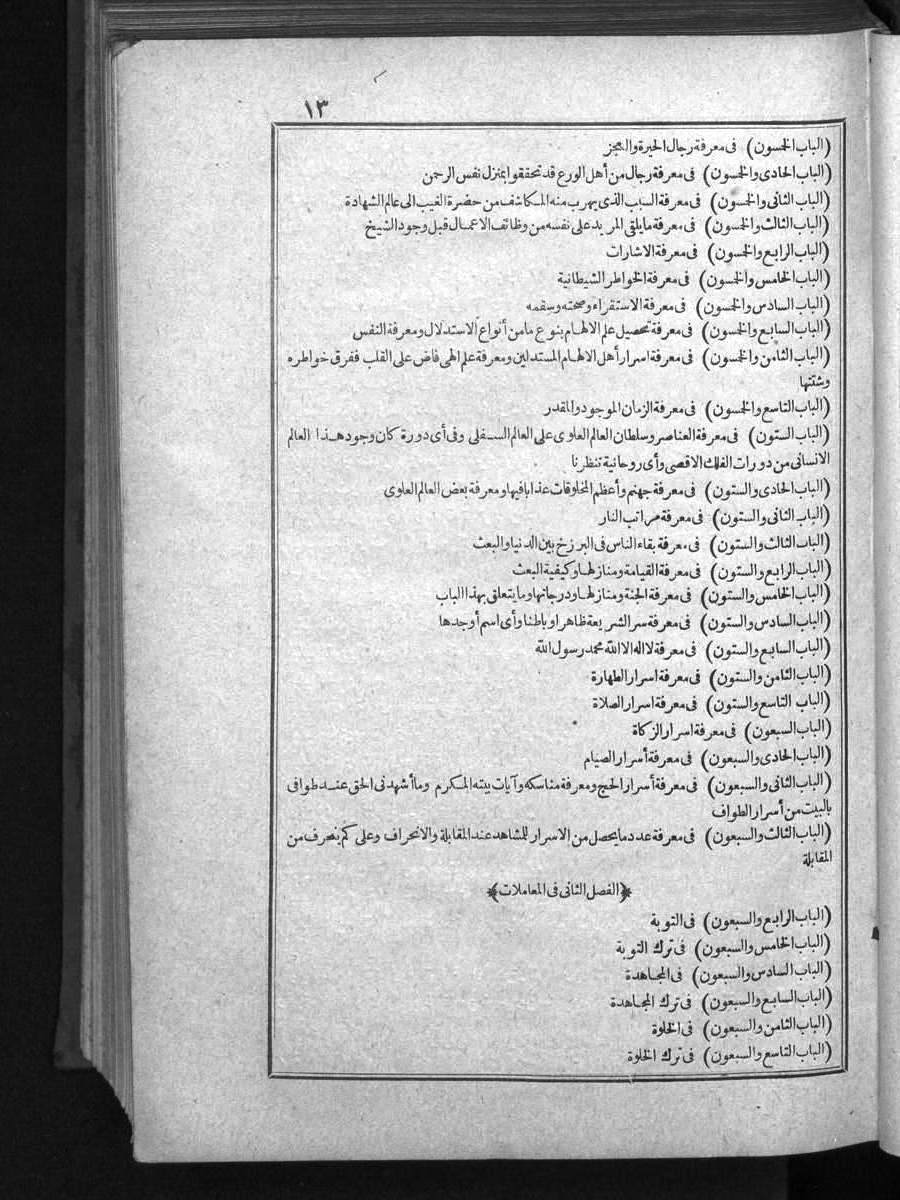 ١٣
(الباب الخمسون) فى معرفة رجال الحيرة والعجز
(الباب الحادى والخمسون) فى معرفة رجال من أهل الورع قد تحققوا بمنزل نفس الرحمن
(الباب الثانى والخمسون) فى معرفة السبب الذى يهرب منه المكاشف من حضرة الغيب الى عالم الشهادة
(الباب الثالث والخمسون) فى معرفة ما يلقى المريد على نفسه من وظائف الاعمال قبل وجود الشيخ
(الباب الرابع والخمسون) فى معرفة الاشارات
(الباب الخامس والخمسون) فى معرفة الخواطر الشيطانية
(الباب السادس والخمسون) فى معرفة الاستقراء وصحته وسقمه
(الباب السابع والخمسون) فى معرفة تحصيل علم الالهام بنوع ما من أنواع الاستدلال ومعرفة النفس
(الباب الثامن والخمسون) فى معرفة اسرار أهل الالهام المستدلين ومعرفة علم الهى فاض على القلب ففرق خواطره
وشتتها
(الباب التاسع والخمسون) فى معرفة الزمان الموجود والمقدر
(الباب الستون) فى معرفة العناصر وسلطان العالم العلوى على العالم السفلى وفى أى دورة كان وجود هذا العالم
الانسانى من دورات الفلك الاقصى وأى روحانية تنظرنا
(الباب الحادى والستون) فى معرفة جهنم وأعظم المخلوقات عذابا فيها ومعرفة بعض العالم العلوى
(الباب الثانى والستون) فى معرفة مراتب النار
(الباب الثالث والستون) فى معرفة بقاء الناس فى البرزخ بين الدنيا والبعث
(الباب الرابع والستون) فى معرفة القيامة ومنازلها وكيفية البعث
(الباب الخامس والستون) فى معرفة الجنة ومنازلها ودرجاتها وما يتعلق بهذا الباب
(الباب السادس والستون) فى معرفة سر الشريعة ظاهرا وباطنا وأى اسم أوجدها
(الباب السابع والستون) فى معرفة لا اله الا الله محمد رسول الله
(الباب الثامن والستون) فى معرفة اسرار الطهارة
(الباب التاسع والستون) فى معرفة اسرار الصلاة
(الباب السبعون) فى معرفة اسرار الزكاة
(الباب الحادى والسبعون) فى معرفة أسرار الصيام
(الباب الثانى والسبعون) فى معرفة أسرار الحج ومعرفة مناسكه وآيات بيته المكرم وما أشهدنى الحق عند طوافى
بالبيت من أسرار الطواف
(الباب الثالث والسبعون) فى معرفة عدد ما يحصل من الاسرار للمشاهد عند المقابلة والانحراف وعلى كم ينحرف من
المقابلة
﴿الفصل الثانى فى المعاملات﴾
(الباب الرابع والسبعون) فى التوبة
(الباب الخامس والسبعون) فى ترك التوبة
(الباب السادس والسبعون) فى المجاهدة
(الباب السابع والسبعون) فى ترك المجاهدة
(الباب الثامن والسبعون) فى الخلوة
(الباب التاسع والسبعون) فى ترك الخلوة